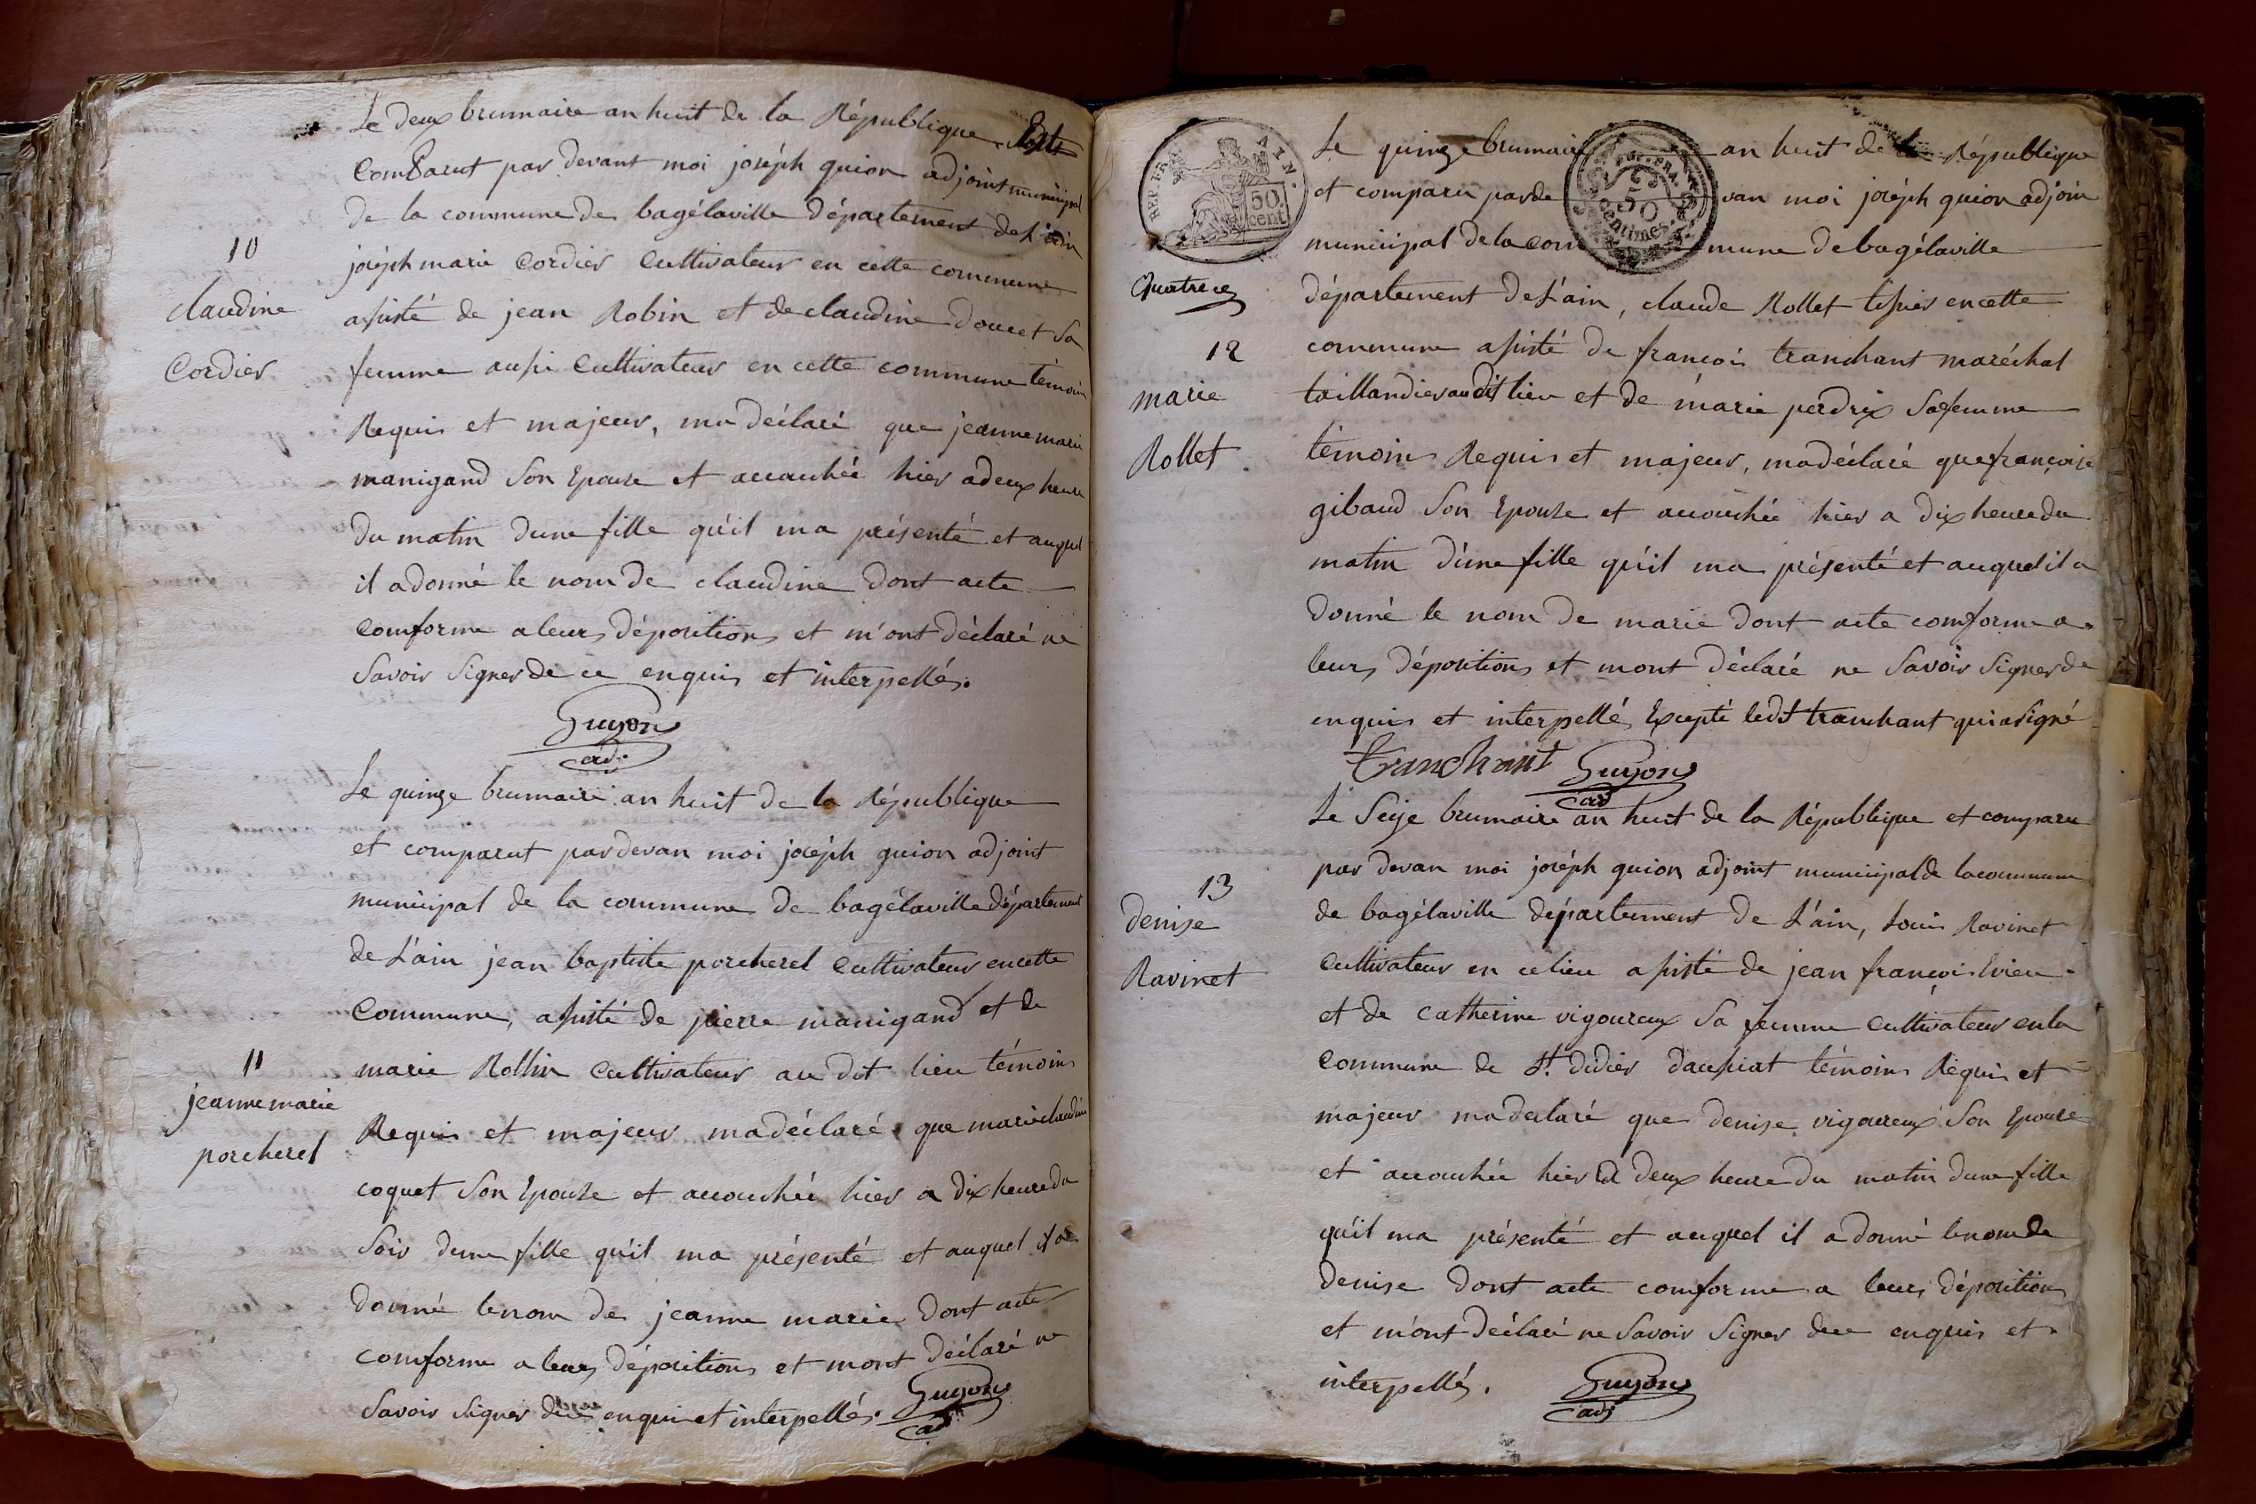 Le deux brumaire an huit de la République
Comparut par devant moi joséph guion adjoint municipal
de la commune de bagélaville département de L'ain
joséph marie Cordier Cultivateur en cette commune
assisté de jean Robin et de claudine doucet Sa
femme aussi Cultivateur en cette commune témoin
Requis et majeur, ma déclaré que jeanne marie
manigand Son Epouse et accouchée hier a deux heure
du matin dune fille qu'il ma présenté et auquel
il a donné le nom de claudine dont acte
Comforme a leurs dépositions et m'ont déclaré ne
Savoir Signer de ce enquis et interpellés.
Guyon
adj.
10
claudine
Cordier
Le quinze brumaire an huit de la République
et comparut pardevan moi joséph guion adjoint
municipal de la commune de bagélaville département
de L'ain jean baptiste porcherel Cultivateur en cette
Commune, assisté de pierre manigand et de
marie Rollin Cultivateur au dit lieu témoins
Requis et majeur ma déclaré que marie claudine
coquet Son Epouse et accouchée hier a dix heure du
Soir dune fille qu'il ma présenté et auquel il a
donné le nom de jeanne marie dont acte
comforme a leurs dépositions et mont déclaré ne
Savoir Signer de ce enquis et interpellés.
Guyon
adj
11
jeanne marie
porcherel
AIN.
50.
cent.
50
Centimes
quatre
Le quinze brumaire an huit de la République
et comparu parde van moi joséph guion adjoin
municipal de la com mune de bagélaville
département de L'ain, claude Rollet tissier en cette
commune assisté de françois tranchant maréchal
taillandier audit lieu et de marie perdrix Sa femme
témoins Requis et majeur, ma déclaré que françoise
gibaud Son Epouse et accouchée hier a dix heure du
matin d'une fille qu'il ma présenté et auquel il a
donné le nom de marie dont acte comforme a
leurs dépositions et mont déclaré ne Savoir Signer de
enquis et interpellé Excepté ledt tranchant qui a signé
tranchant Guyon
adj
12
marie
Rollet
Le Seize brumaire an huit de la République et comparu
par devan moi joséph guion adjoint municipal de la commune
de bagélaville département de L'ain, Louis Ravinet
Cultivateur en ce lieu assisté de jean françois
et de catherine vigoureux Sa femme Cultivateur en la
Commune de St. didier daussiat témoins Requis et
majeur ma declaré que denise vigoureux Son Epouse
et accouchée hier a deux heure du matin dune fille
qu'il ma présenté et auquel il a donné le nom de
denise dont acte comforme a leurs dépositions
et m'ont déclaré ne Savoir Signer de ce enquis et
interpellés.
Guyon
adj
13
denise
Ravinet